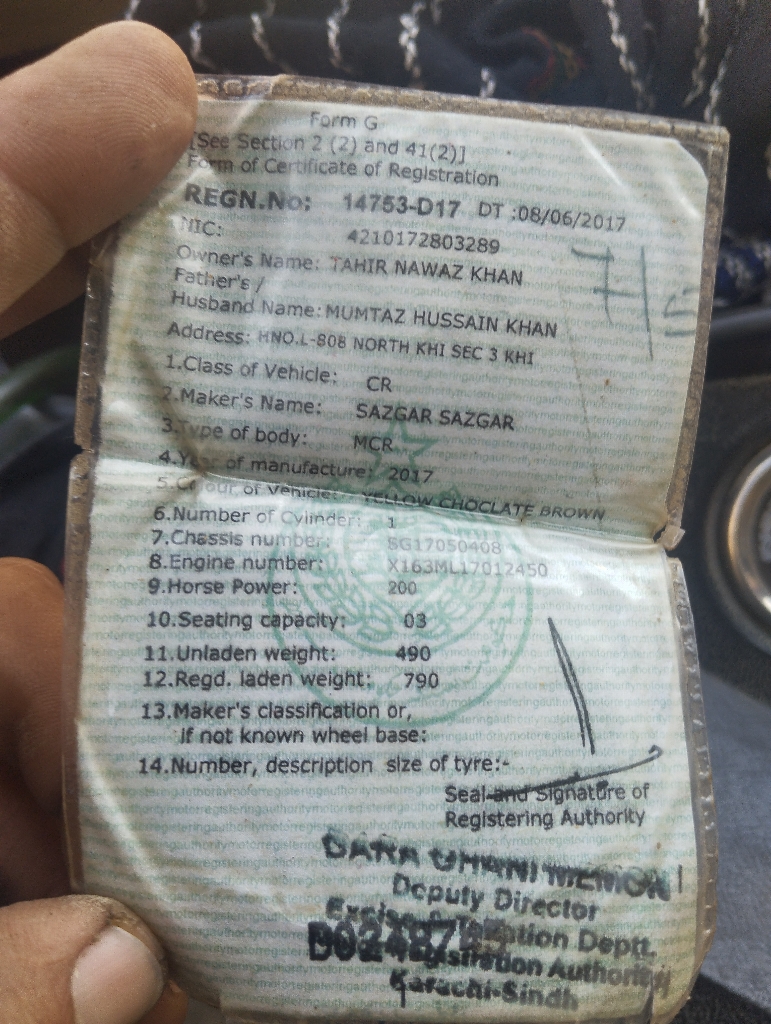 Form G
[See Section 2 (2) and 41(2)]
Form of Certificate of Registration
REGN.No: 14753-D17 DT :08/06/2017
NIC: 4210172803289
Owner's Name: TAHIR NAWAZ KHAN
Father's /
Husband Name: MUMTAZ HUSSAIN KHAN
Address: HNO.L-808 NORTH KHI SEC 3 KHI
1.Class of Vehicle: CR
2.Maker's Name: SAZGAR SAZGAR
3.Type of body: MCR
4.Year of manufacture: 2017
5.Colour of Vehicle: YELLOW CHOCLATE BROWN
6.Number of Cylinder: 1
7.Chassis number: SG17050408
8.Engine number: X163ML17012450
9.Horse Power: 200
10.Seating capacity: 03
11.Unladen weight: 490
12.Regd. laden weight: 790
13.Maker's classification or,
if not known wheel base:
14.Number, description size of tyre:-
Seal and Signature of
Registering Authority
MEMON
Deputy Director
Deptt.
Authority
Karachi-Sindh